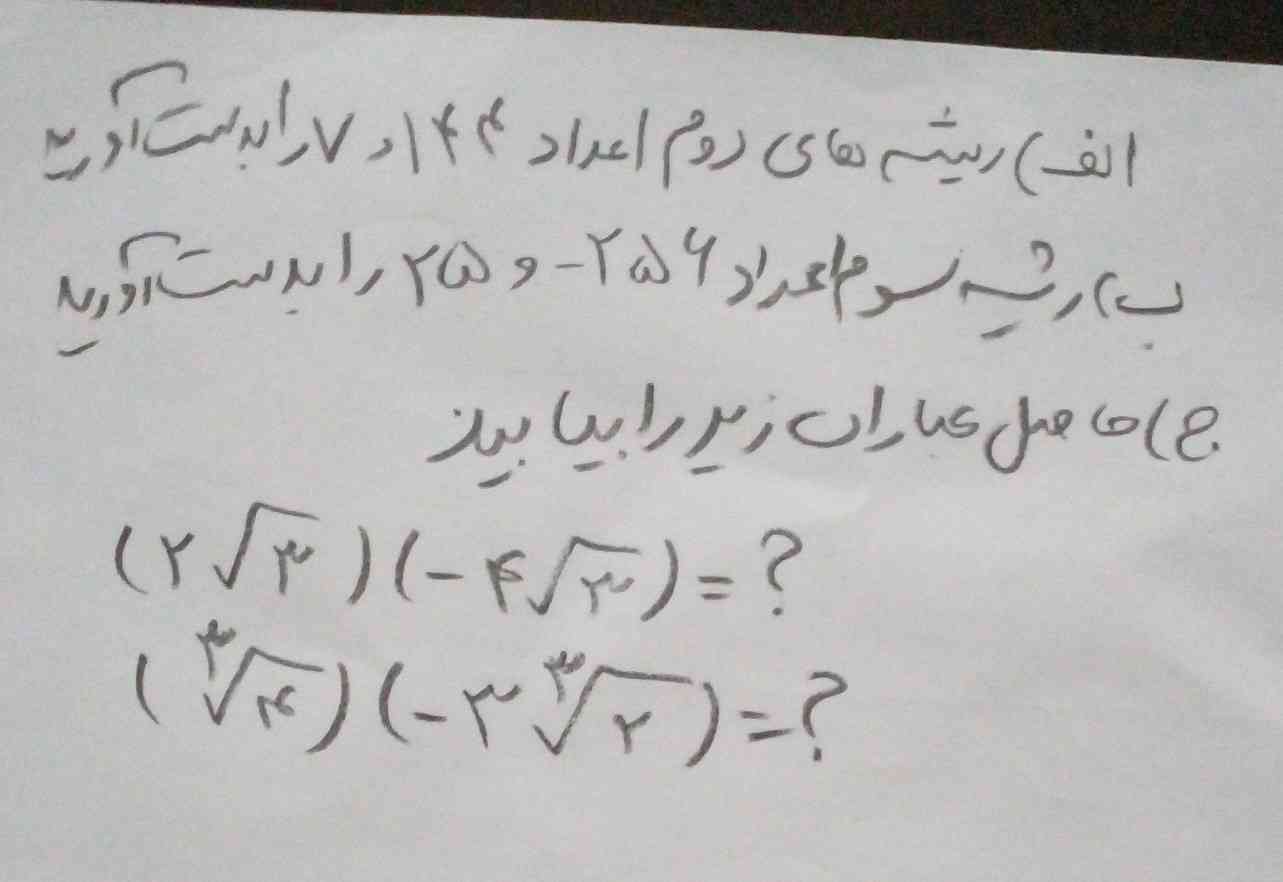 الف) ریشه های دوم اعداد ۱۴۴ و ۷ را بدست آورید
ب) ریشه سوم اعداد ۲۵۶- و ۲۵ را بدست آورید
ج) حاصل عبارات زیر را بیابید
(۲√۳)(-۴√۳)=?
(∛۴)(-۳∛۲)=?